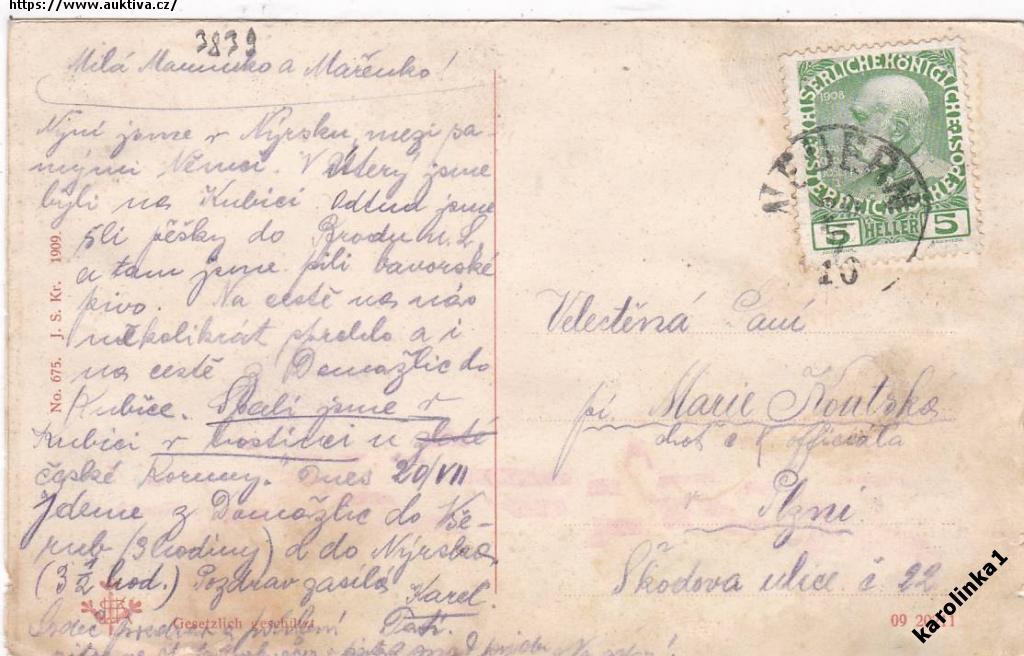 https://www.auktiva.cz/
3839
Milá Maminko a Mařenko!
Nyní jsme v Nýrsku, mezi sa-
mými Němci. V úterý jsme
byli na Kubici. Odtud jsme
šli pěšky do Brodu n. L.
a tam jsme pili bavorské
pivo. Na cestě na nás
několikrát sprchlo a i
na cestě z Domažlic do
Kubice. Spali jsme v
Kubici v hostinci u zlaté
české Koruny. Dnes 20/VII
jdeme z Domažlic do Kdě-
nub (3 hodiny) a do Nýrska
(3 1/2 hod.) Pozdrav zasílá
Karel.
Srdeč pozdrav a políbení Tatí.
No. 675. J. S. Kr. 1909.
Gesetzlich geschützt
KAISERLICHE KÖNIGLICHE ÖSTERREICHISCHE POST
1908
5 HELLER 5
10
Velectěná Paní
pí. Marie Koutská
choť c k officiála
v Plzni
Škodova ulice č. 22
09 20 11
karolinka1